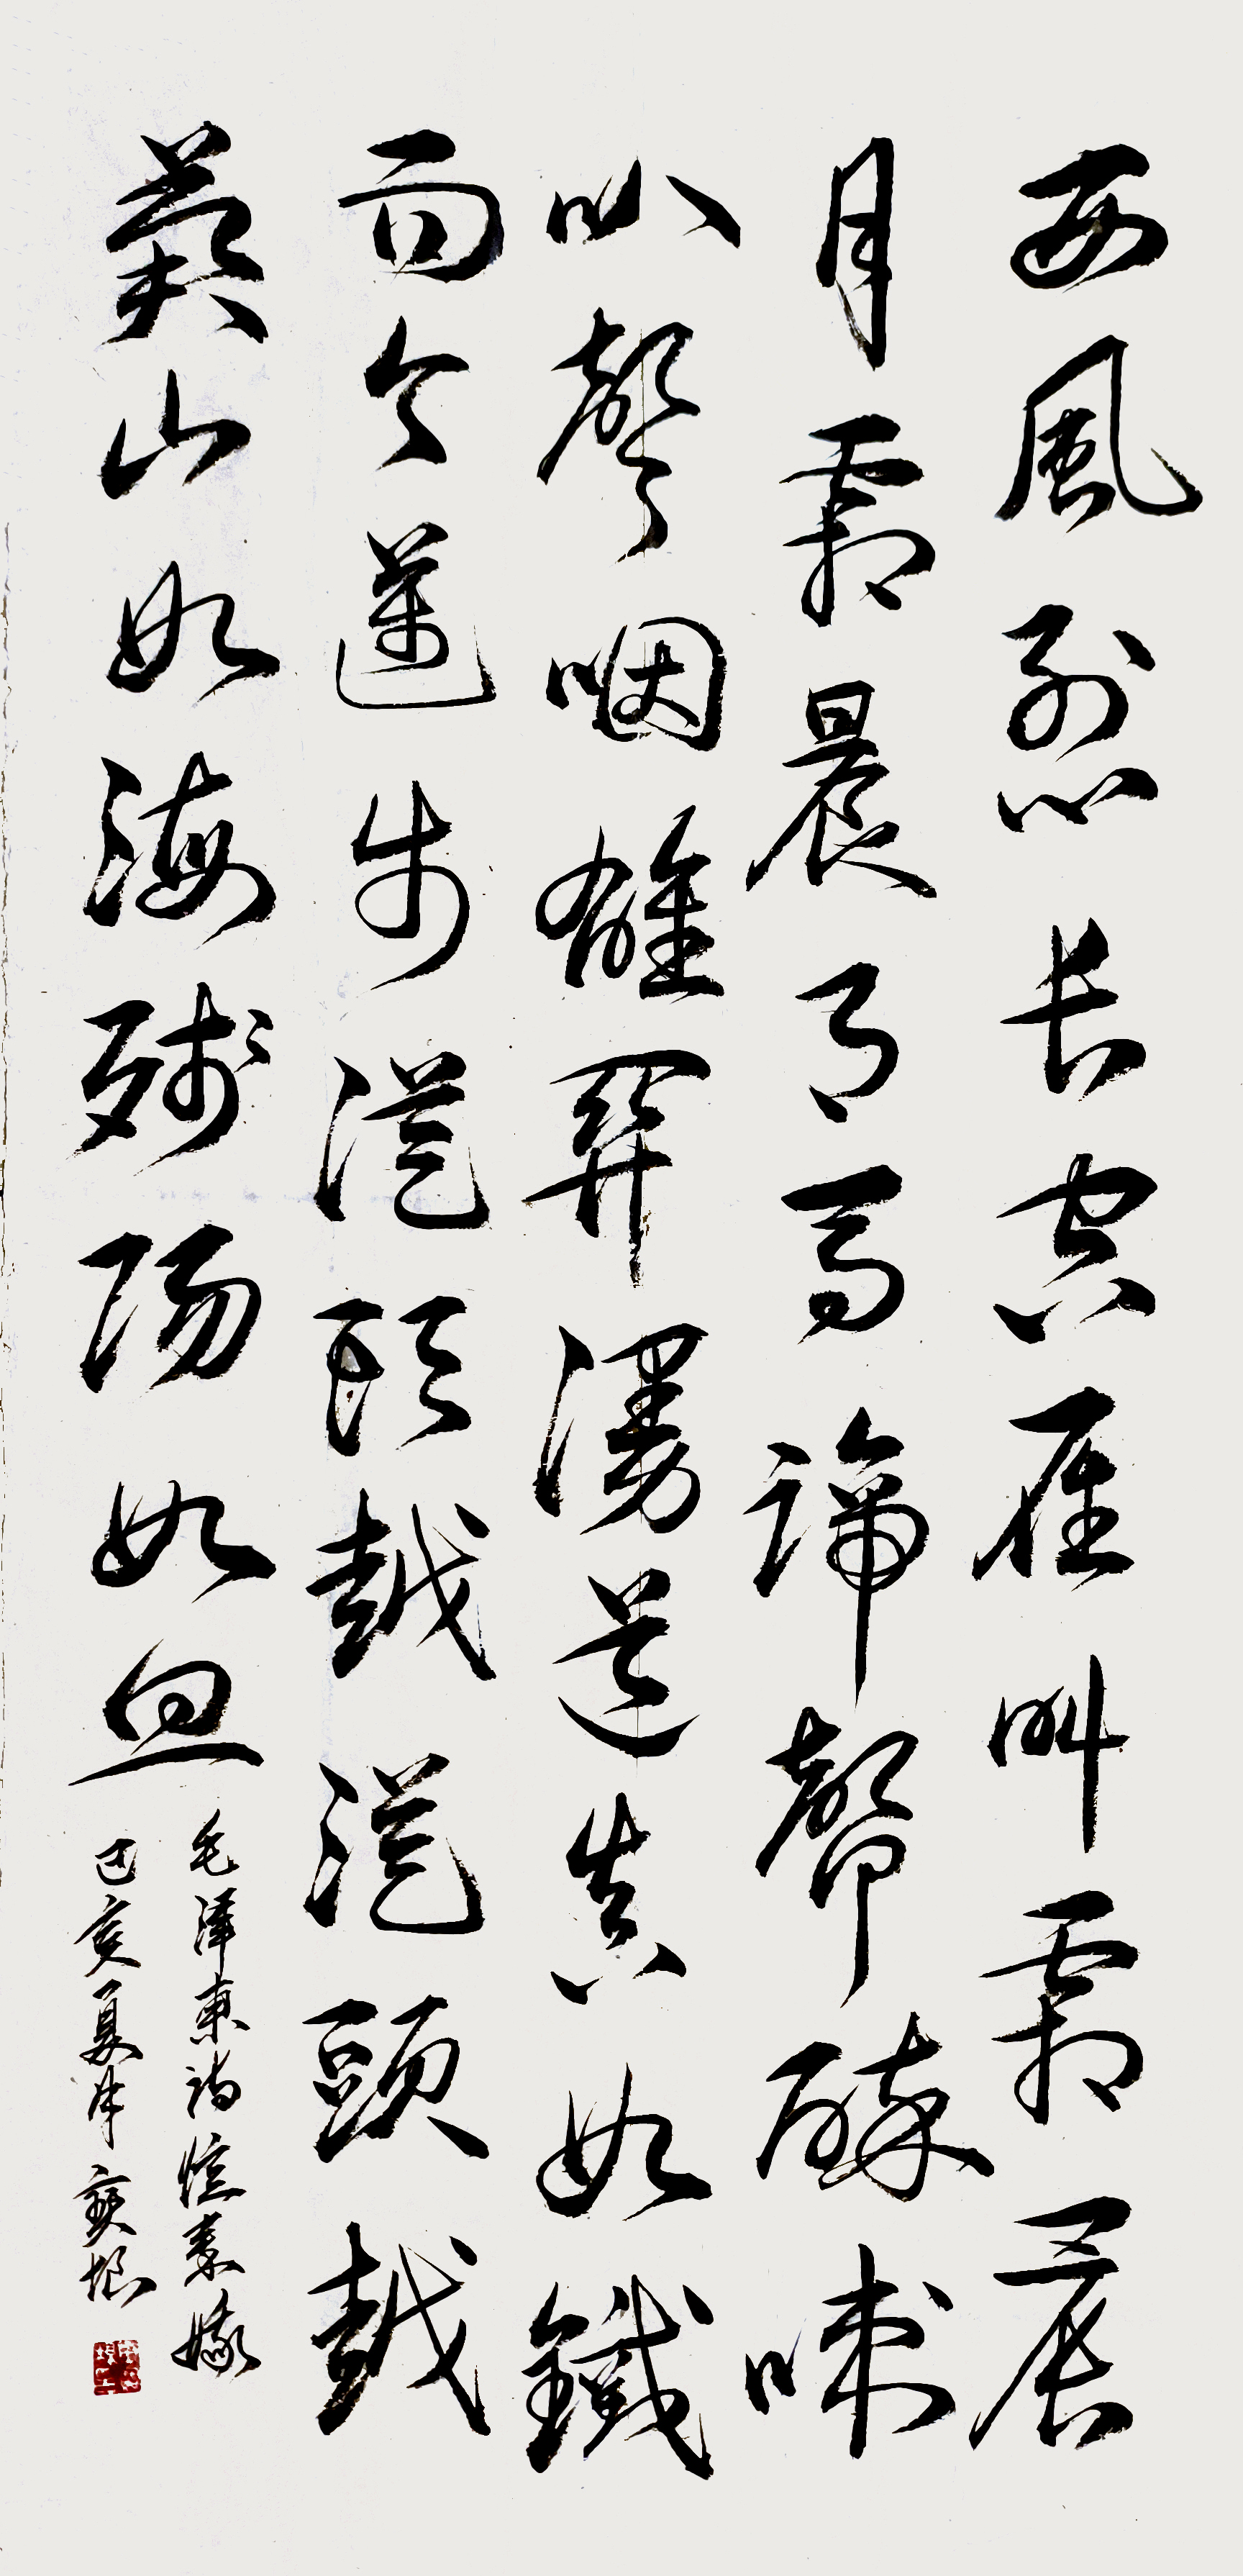 西風烈长空雁叫霜晨
月霜晨月馬蹄聲碎喇
叭聲咽雄關漫道真如鐵
而今邁步從頭越從頭越
蒼山如海殘陽如血
毛泽東詞憶秦娥
己亥夏月